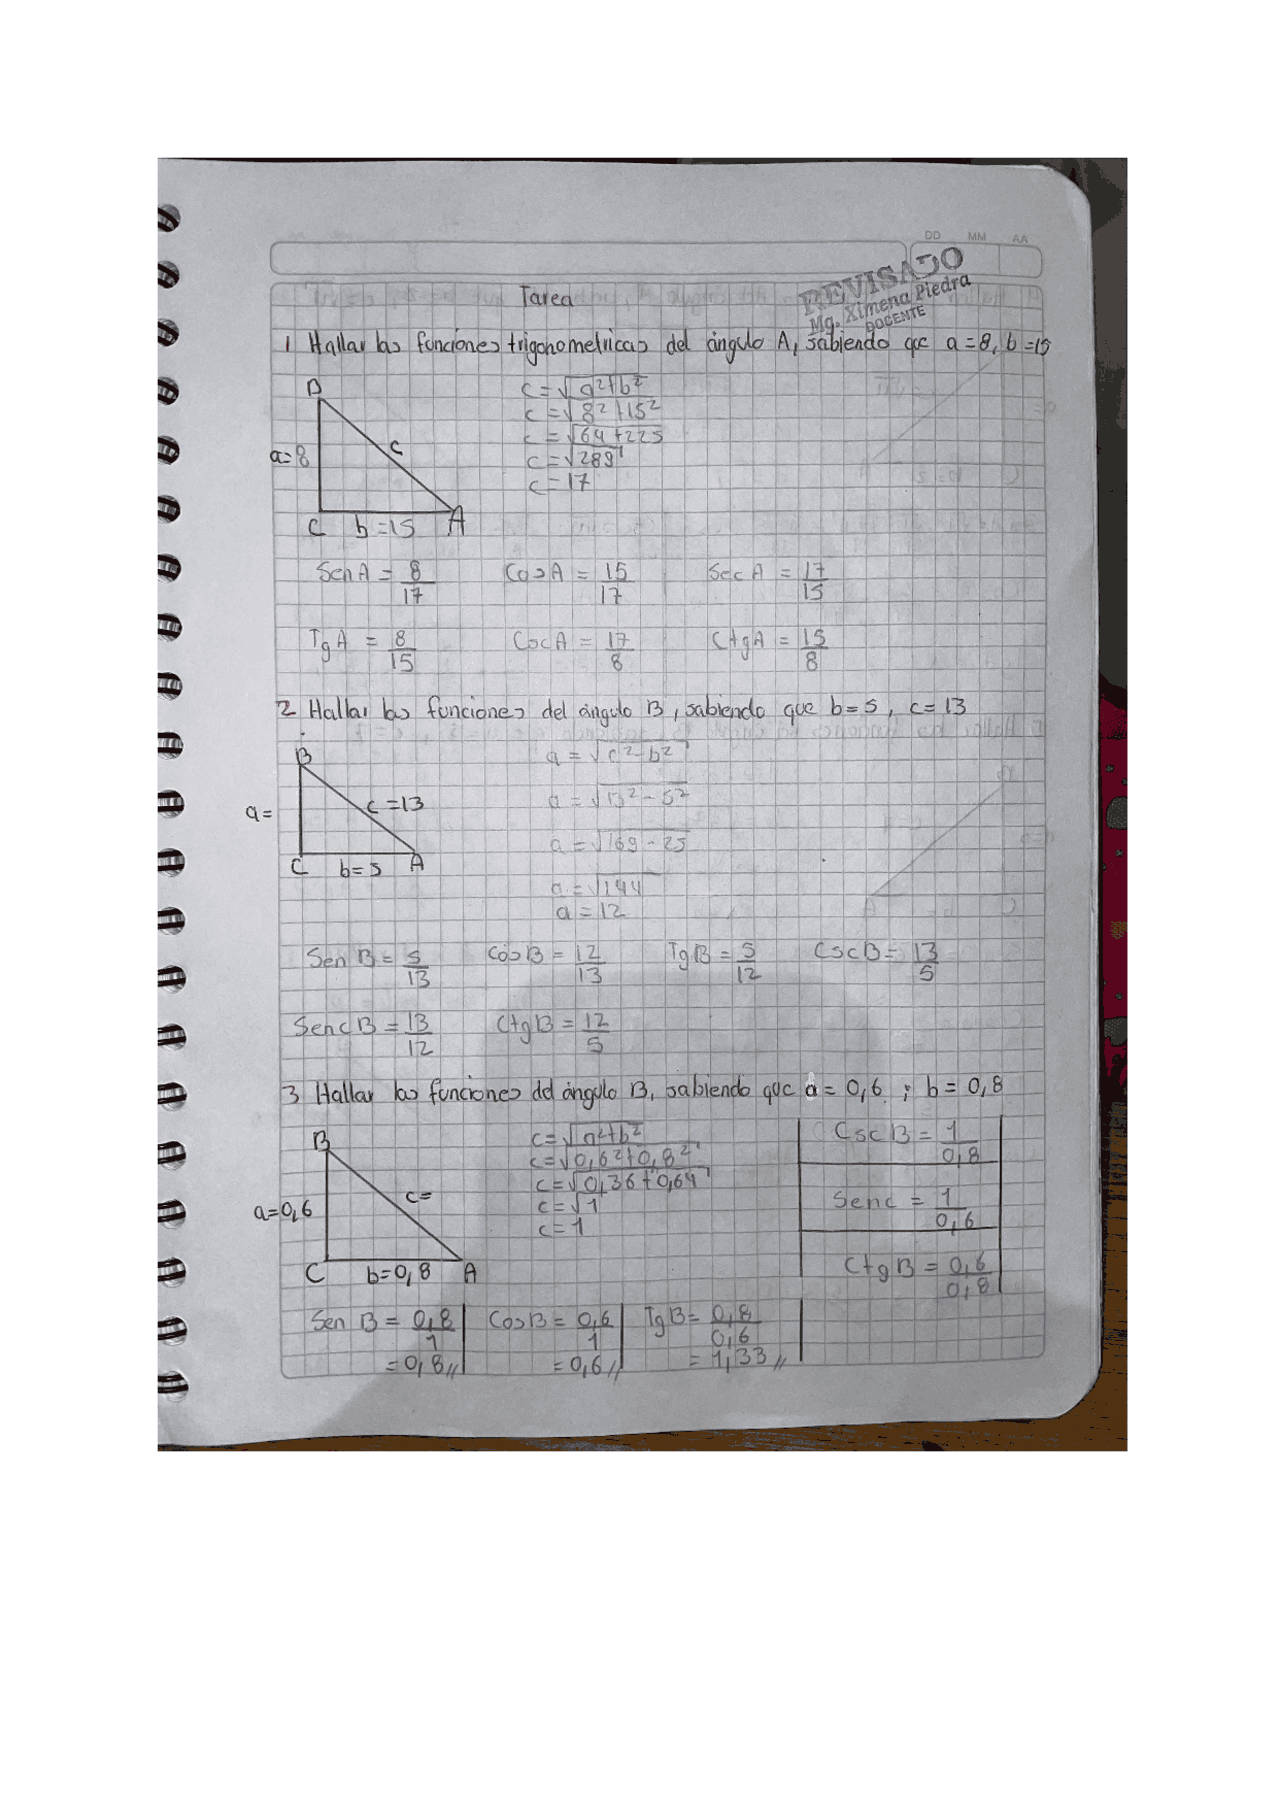 DD MM AA
REVISADO
Mg. Ximena Piedra
DOCENTE
Tarea
1 Hallar las funciones trigonometricas del ángulo A, sabiendo que a=8, b=15
B
a=8
c
C b=15 A
c=√a²+b²
c=√8²+15²
c=√64+225
c=√289
c=17
SenA = 8/17 CosA = 15/17 SecA = 17/15
TgA = 8/15 CscA = 17/8 CtgA = 15/8
2 Hallar las funciones del ángulo B, sabiendo que b=5, c=13
B
a=
c=13
C b=5 A
a=√c²-b²
a=√13²-5²
a=√169-25
a=√144
a=12
Sen B = 5/13 CosB = 12/13 TgB = 5/12 CscB = 13/5
SencB = 13/12 CtgB = 12/5
3 Hallar las funciones del ángulo B, sabiendo que a=0,6 ; b=0,8
B
a=0,6
c=
C b=0,8 A
c=√a²+b²
c=√0,6²+0,8²
c=√0,36+0,64
c=√1
c=1
CscB = 1/0,8
Senc = 1/0,6
CtgB = 0,6/0,8
Sen B = 0,8/1 CosB = 0,6/1 TgB = 0,8/0,6
=0,8// =0,6// =1,33//